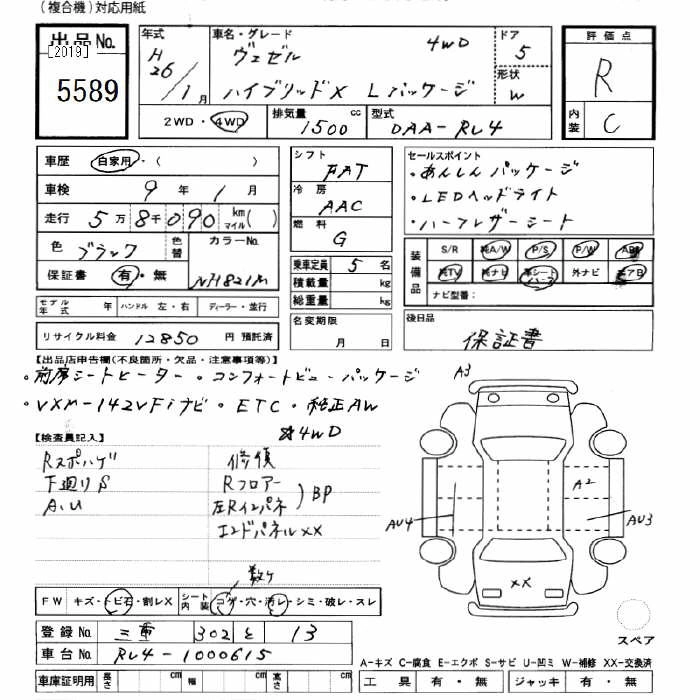 (複合機)対応用紙
出品No.
[2019]
5589
年式
H
26/1月
車名・グレード
ヴェゼル 4WD
ハイブリッドX Lパッケージ
ドア
5
形状
W
2WD・4WD
排気量 1500 cc
型式 DAA-RU4
評価点
R
内装 C
車歴 自家用・( )
車検 9年 1月
走行 5万 8千 090 km マイル( )
色 ブラック 色替
カラーNo. NH821M
保証書 有・無
モデル年式 年 ハンドル 左・右 ディーラー・並行
リサイクル料金 12850 円 預託済
シフト FAT
冷房 AAC
燃料 G
乗車定員 5 名
積載量 kg
総重量 kg
名変期限
月 日
セールスポイント
・あんしんパッケージ
・LEDヘッドライト
・ハーフレザーシート
装備品
S/R 純A/W P/S P/W ABS
純TV 純ナビ 革シート ハーフ 外ナビ エアB
ナビ型番:
後日品
保証書
【出品店申告欄(不良箇所・欠品・注意事項等)】
・前席シートヒーター・コンフォートビューパッケージ
・VXM-142VFiナビ・ETC・純正AW
☆4WD
【検査員記入】
Rスポハゲ
下廻りS
A.U
修復
Rフロアー
左Rインパネ
BP
エンドパネルXX
数ケ
A3
A2
AU4
AU3
XX
スペア
FW キズ・トビ石・割レX
シート内装 コゲ・穴・汚レ・シミ・破レ・スレ
登録No. 三重 302 と 13
車台No. RU4-1000615
車庫証明用 長さ cm 幅 cm 高さ cm
A-キズ C-腐食 E-エクボ S-サビ U-凹ミ W-補修 XX-交換済
工具 有・無 ジャッキ 有・無